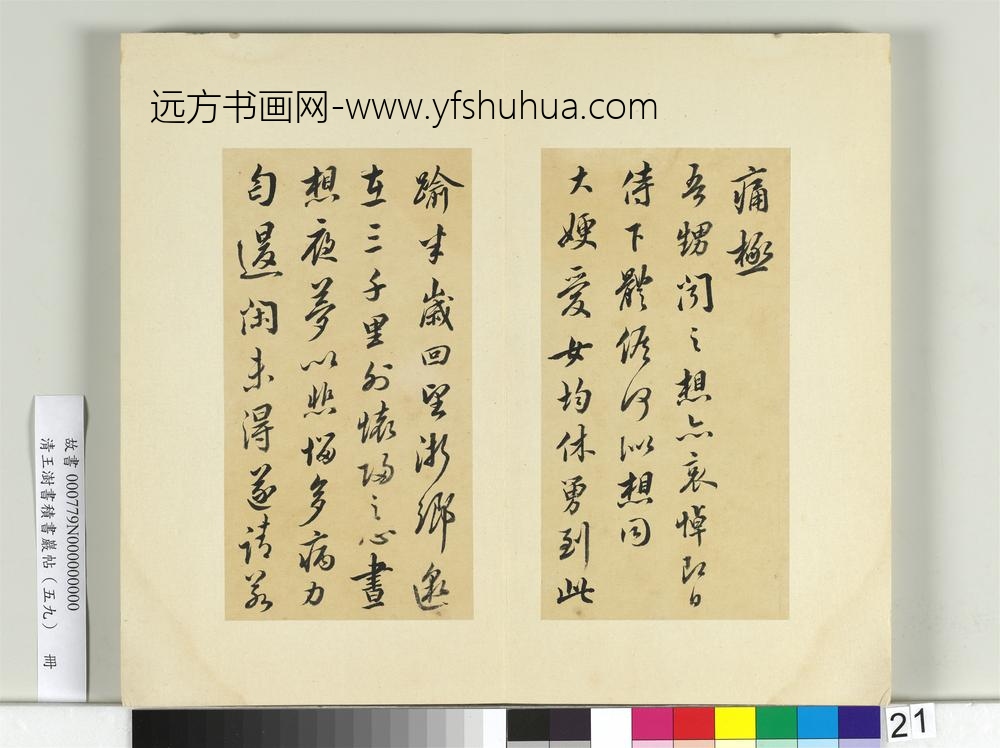 远方书画网-www.yfshuhua.com
痛極
吾甥聞之想亦哀悼即日
侍下體候何似想同
大嫂愛女均休勇到此
踰半歲回望浙鄉邈
在三千里外懷歸之心晝
想夜夢以惱多病力
匄退閑未得遂請若
故書 000779N000000000
清王澍書積書巖帖（五九） 冊
21